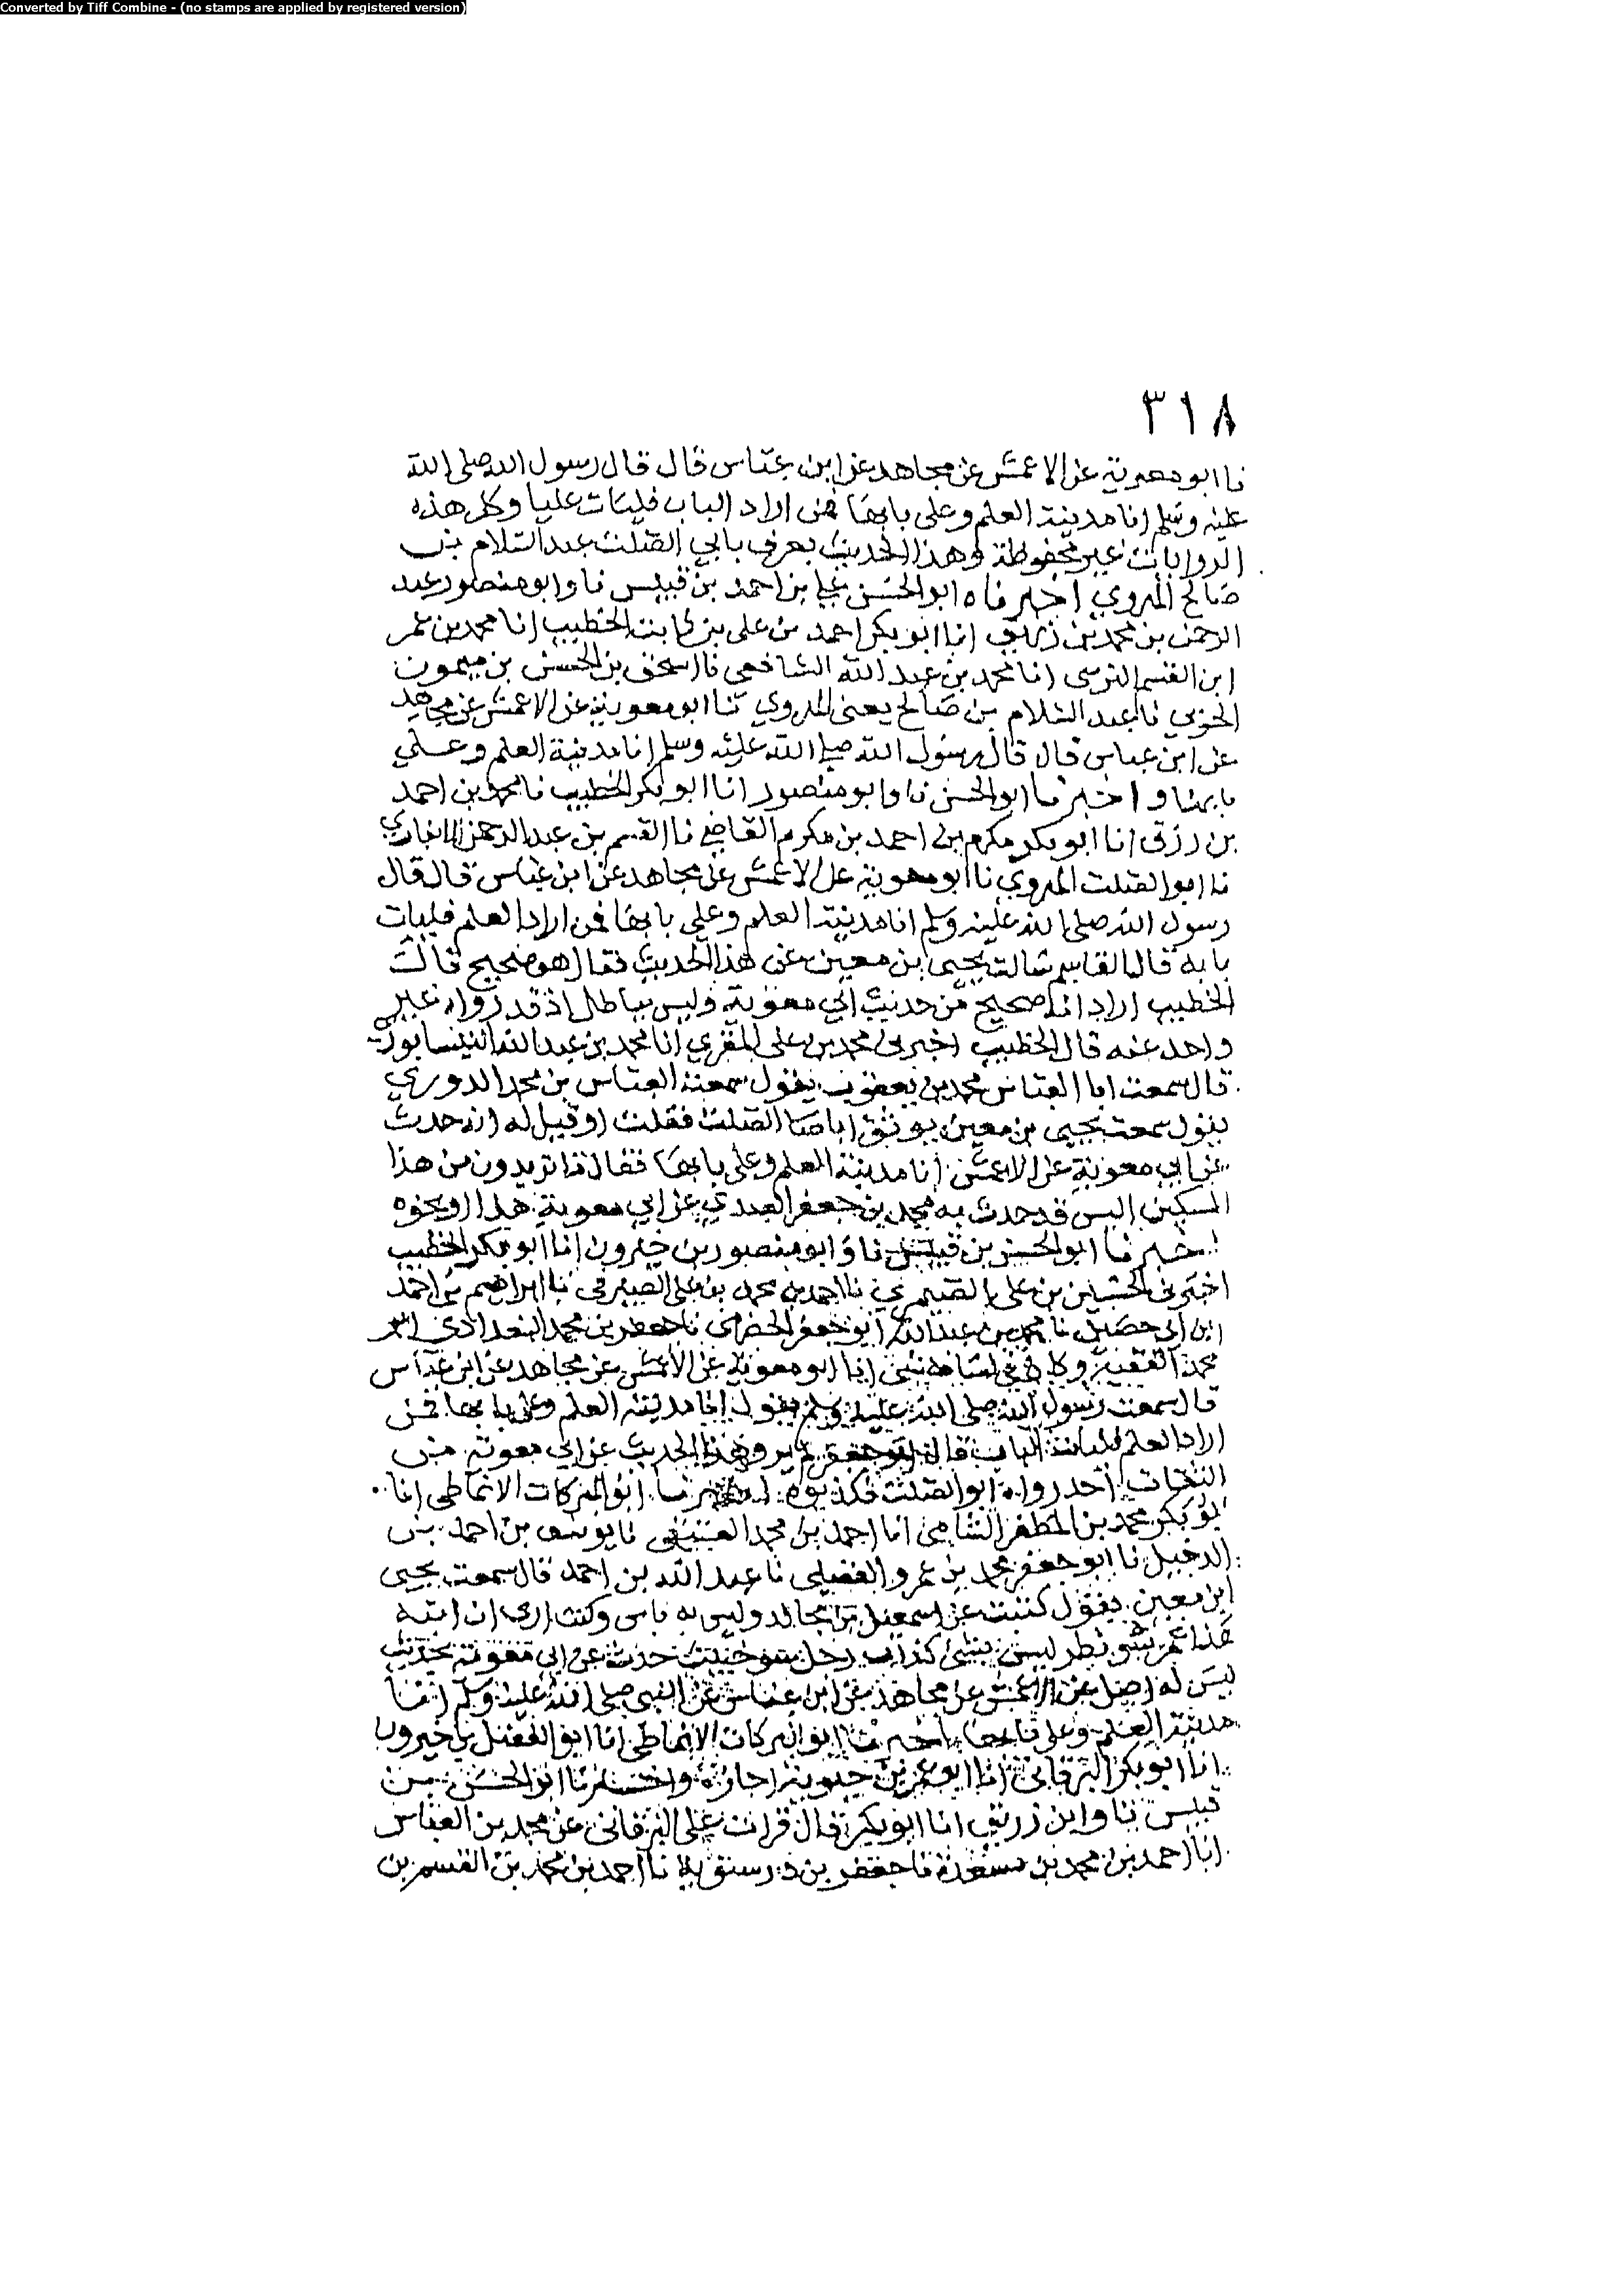 Converted by Tiff Combine - (no stamps are applied by registered version)
٣١٨
نا ابو معوية عن الاعمش عن مجاهد عن ابن عباس قال قال رسول الله صلى الله
عليه وسلم انا مدينة العلم وعلى بابها فمن اراد الباب فليات عليا وكل هذه
الروايات غير محفوظة وهذا الحديث يعرف بابي الصلت عبد السلام بن
صالح الهروي اخبرناه ابو الحسن علي بن احمد بن قبيس نا وابو منصور عبد
الرحمن بن محمد بن زريق انا ابو بكر احمد بن على بن ثابت الخطيب انا محمد بن عمر
ابن القسم النرسى انا محمد بن عبد الله الشافعى نا اسحق بن الحسن بن ميمون
الحربي نا عبد السلام بن صالح يعنى الهروي نا ابو معوية عن الاعمش عن مجاهد
عن ابن عباس قال قال رسول الله صلى الله عليه وسلم انا مدينة العلم وعلي
بابها واخبرنا ابو الحسن نا وابو منصور انا ابو بكر الخطيب نا محمد بن احمد
بن رزق انا ابو بكر مكرم بن احمد بن مكرم القاضي نا القسم بن عبد الرحمن الانباري
نا ابو الصلت الهروي نا ابو معوية عن الاعمش عن مجاهد عن ابن عباس قال قال
رسول الله صلى الله عليه وسلم انا مدينة العلم وعلي بابها فمن اراد العلم فليات
بابه قال القاسم سالت يحيى بن معين عن هذا الحديث فقال هو صحيح قال
الخطيب اراد انه صحيح من حديث ابي معوية وليس بباطل اذ قد رواه غير
واحد عنه قال الخطيب اخبرني محمد بن على المقري انا محمد بن عبد الله النيسابوري
قال سمعت ابا العباس محمد بن يعقوب يقول سمعت العباس بن محمد الدوري
يقول سمعت يحيى بن معين يوثق ابا الصلت فقلت او قيل له انه حدث
عن ابي معوية عن الاعمش انا مدينة العلم وعلى بابها فقال ما تريدون من هذا
المسكين اليس قد حدث به محمد بن جعفر الفيدي عن ابي معوية هذا او نحوه
اخبرنا ابو الحسن بن قبيس نا وابو منصور بن خيرون انا ابو بكر الخطيب
اخبرنى الحسين بن على الصيمري نا احمد بن محمد بن على الصيرفى نا ابراهيم بن احمد
ابن ابى حصين نا محمد بن عبد الله ابو جعفر الحضرمى نا جعفر بن محمد البغدادي ابو
محمد الفقيه وكان في لسانه شئ انا ابو معوية عن الاعمش عن مجاهد عن ابن عباس
قال سمعت رسول الله صلى الله عليه وسلم يقول انا مدينة العلم وعلى بابها فمن
اراد العلم فليات الباب قال ابو جعفر لم يرو هذا الحديث عن ابي معوية من
الثقات احد رواه ابو الصلت فكذبوه اخبرنا ابو البركات الانماطى انا
ابو بكر محمد بن المظفر الشامى انا احمد بن محمد العتيقى نا يوسف بن احمد بن
الدخيل نا ابو جعفر محمد بن عمرو العقيلى نا عبد الله بن احمد قال سمعت يحيى
ابن معين يقول كتبت عن اسمعيل بن مجالد وليس به باس وكنت ارى ان ابنه
هذا عمر ليس بشئ كذاب رجل سو خبيث حدث عن ابى معوية بحديث
ليس له اصل عن الاعمش عن مجاهد عن ابن عباس عن النبى صلى الله عليه وسلم انا
مدينة العلم وعلى بابها اخبرنا ابو البركات الانماطى انا ابو الفضل بن خيرون
انا ابو بكر البرقانى انا ابو عمر بن حيوية اجازة واخبرنا ابو الحسن بن
قبيس نا وابن زريق انا ابو بكر قال قرات على البرقانى عن محمد بن العباس
انا احمد بن محمد بن مسعدة نا جعفر بن درستويه نا احمد بن محمد بن القسم بن